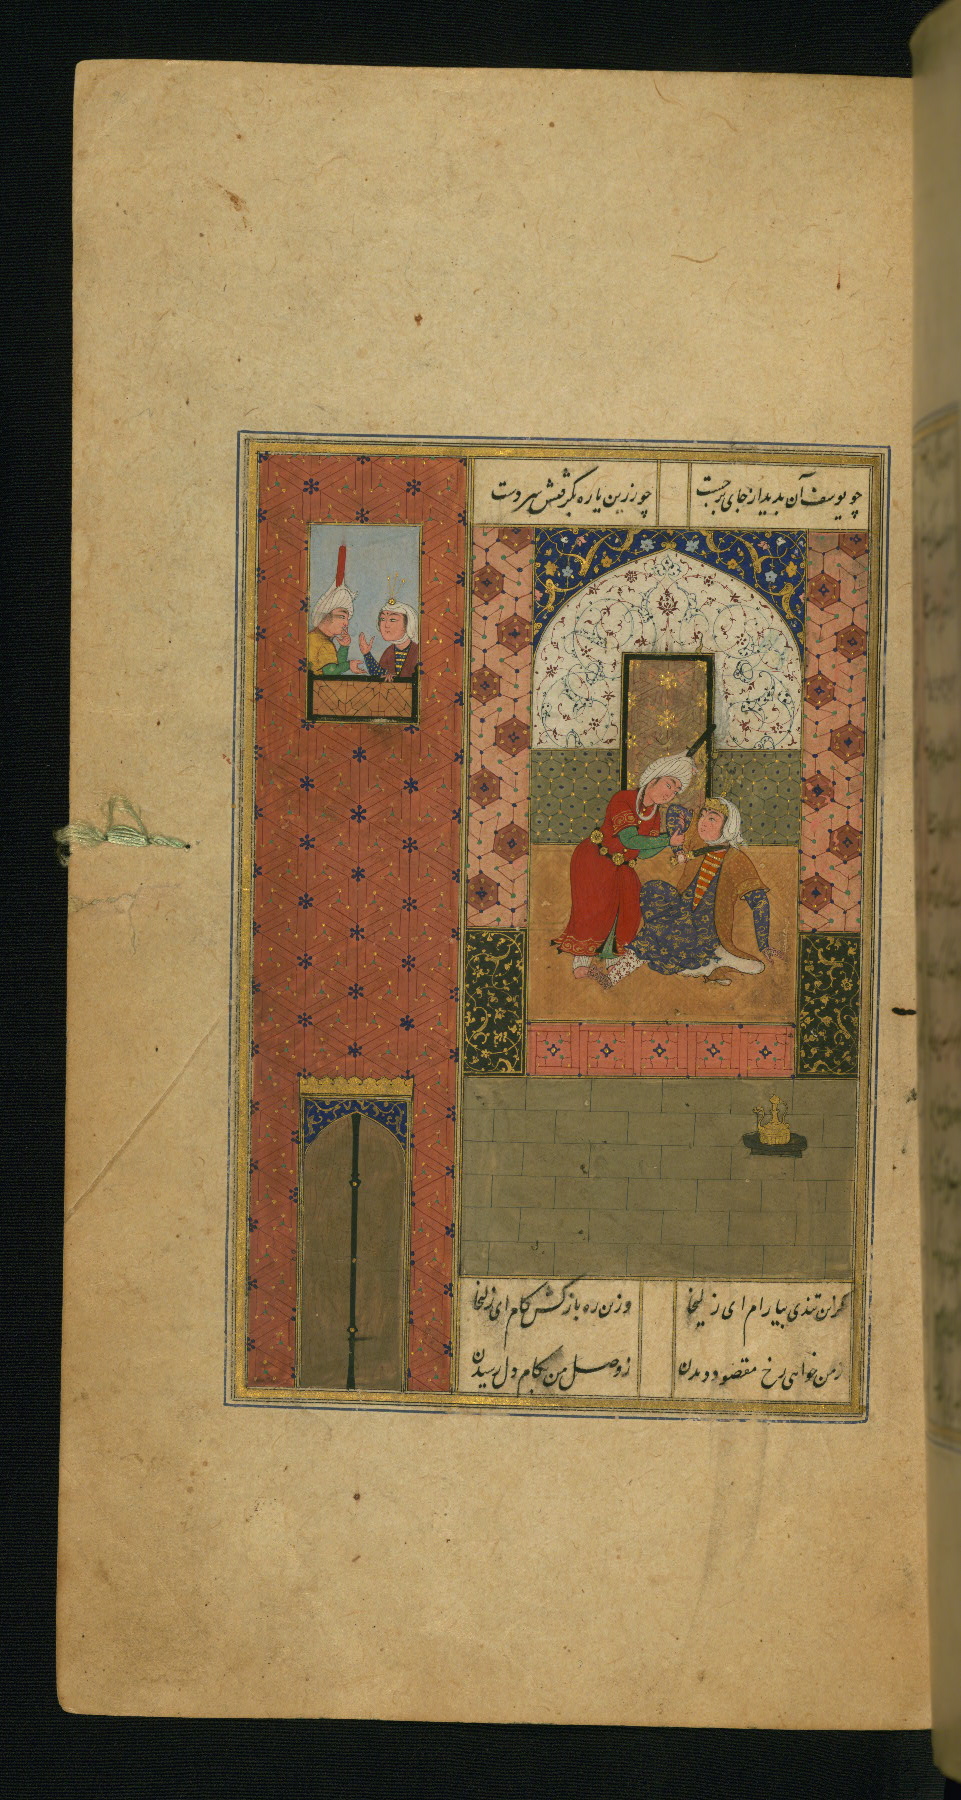 چو یوسف آن بدید از جای برجست
چو زرین یاره بگرفتش سر دست
کزین تندی بیارام ای زلیخا
وزین ره بازکش گام ای زلیخا
ز من خواهی رخ مقصود دیدن
ز وصل من بکام دل رسیدن